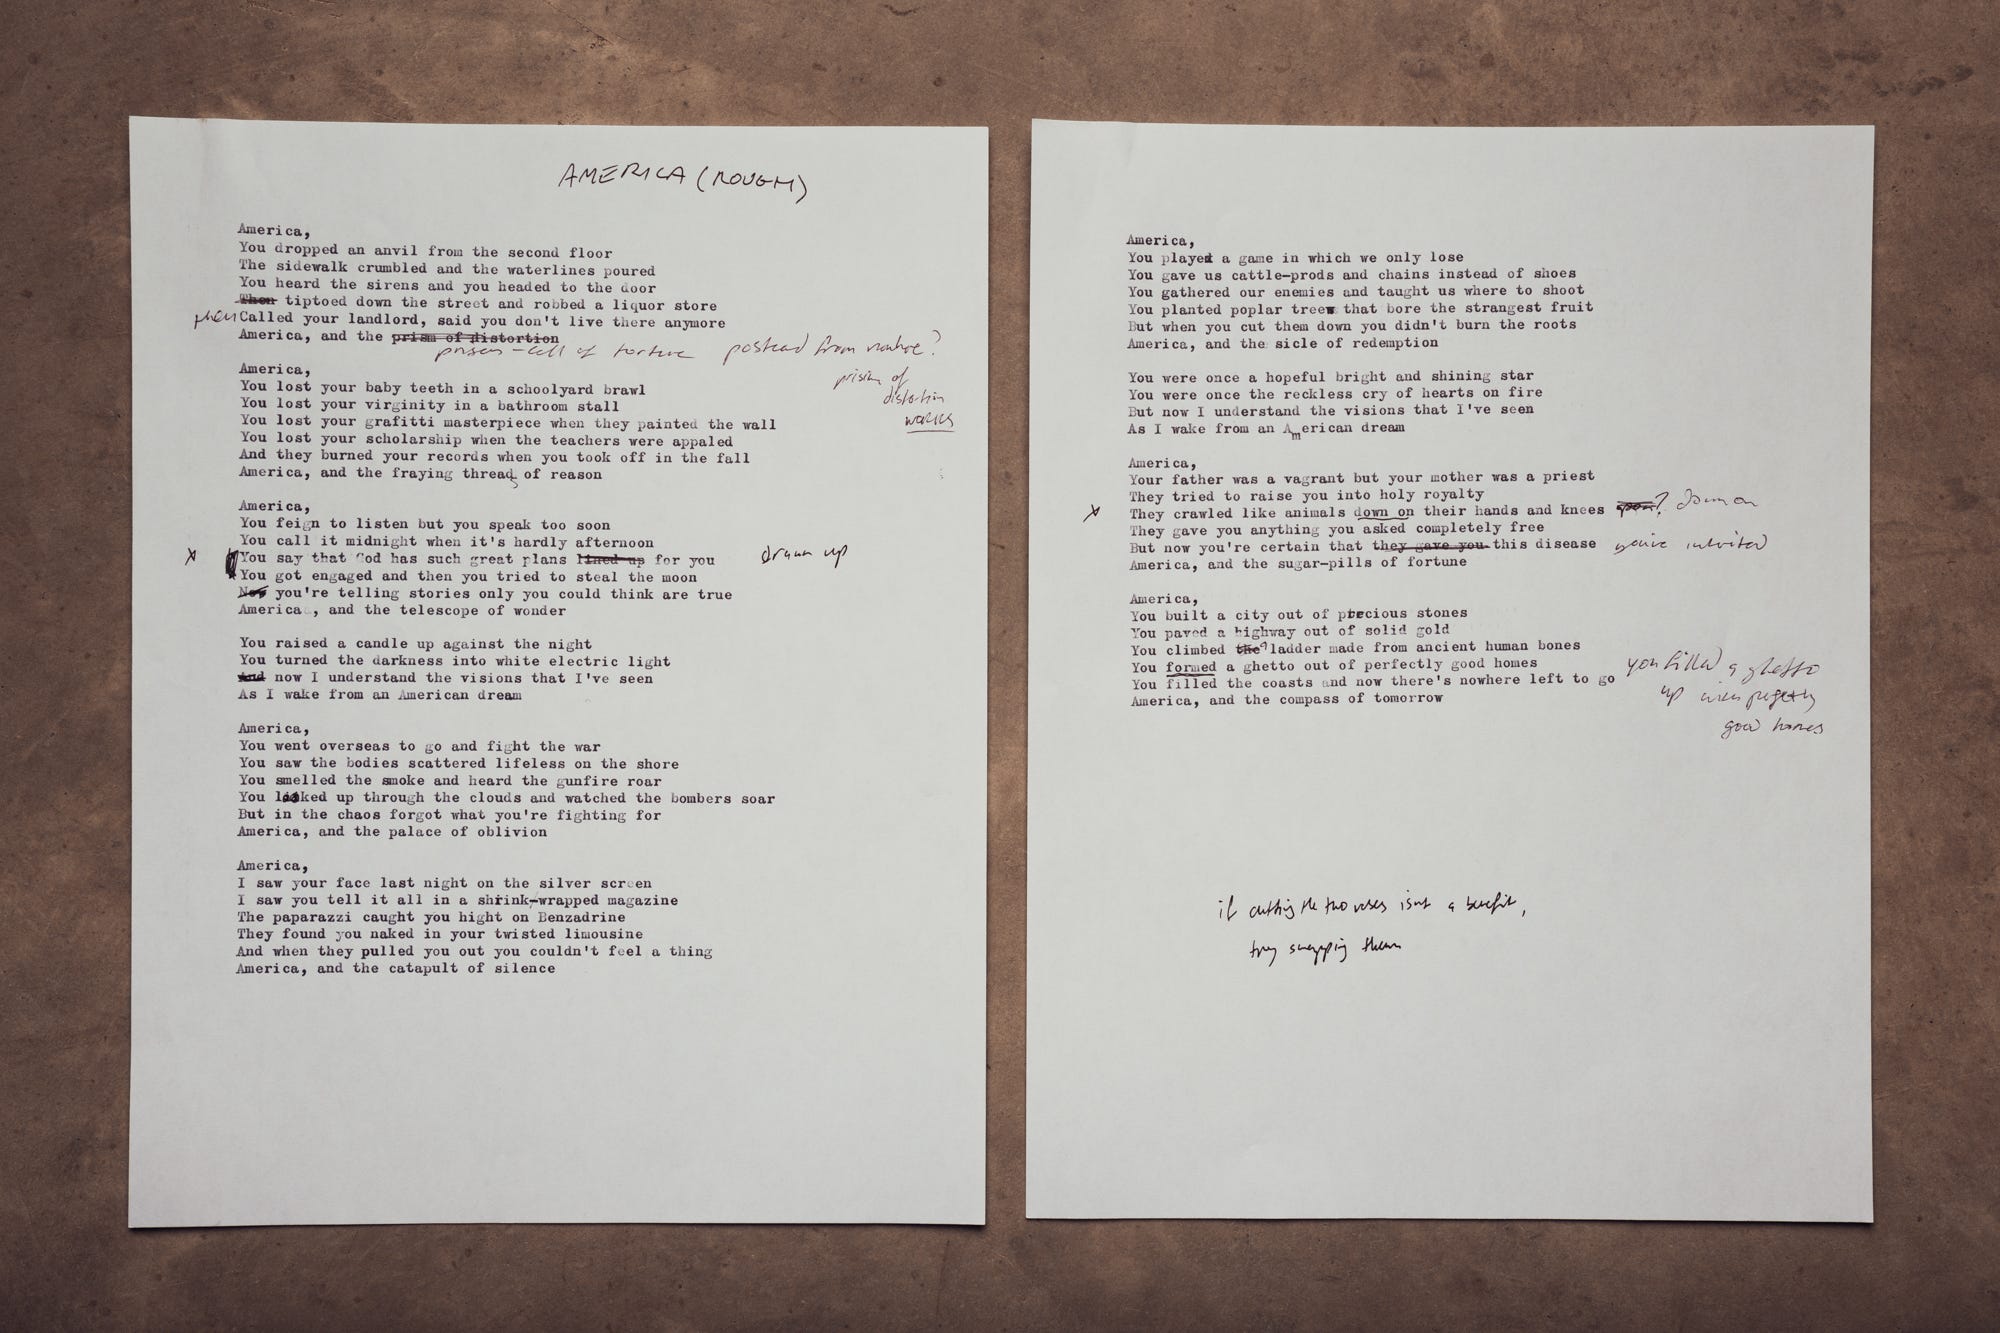 AMERICA (ROUGH)
America,
You dropped an anvil from the second floor
The sidewalk crumbled and the waterlines poured
You heard the sirens and you headed to the door
Then tiptoed down the street and robbed a liquor store
then Called your landlord, said you don't live there anymore
America, and the prism of distortion
prison-cell of torture postcard from nowhere?
prism of
distortion
works
America,
You lost your baby teeth in a schoolyard brawl
You lost your virginity in a bathroom stall
You lost your grafitti masterpiece when they painted the wall
You lost your scholarship when the teachers were appaled
And they burned your records when you took off in the fall
America, and the fraying threads of reason
America,
You feign to listen but you speak too soon
You call it midnight when it's hardly afternoon
x You say that God has such great plans lined up for you drawn up
You got engaged and then you tried to steal the moon
Now you're telling stories only you could think are true
America , and the telescope of wonder
You raised a candle up against the night
You turned the darkness into white electric light
And now I understand the visions that I've seen
As I wake from an American dream
America,
You went overseas to go and fight the war
You saw the bodies scattered lifeless on the shore
You smelled the smoke and heard the gunfire roar
You looked up through the clouds and watched the bombers soar
But in the chaos forgot what you're fighting for
America, and the palace of oblivion
America,
I saw your face last night on the silver screen
I saw you tell it all in a shrink-wrapped magazine
The paparazzi caught you hight on Benzadrine
They found you naked in your twisted limousine
And when they pulled you out you couldn't feel a thing
America, and the catapult of silence
America,
You played a game in which we only lose
You gave us cattle-prods and chains instead of shoes
You gathered our enemies and taught us where to shoot
You planted poplar trees that bore the strangest fruit
But when you cut them down you didn't burn the roots
America, and the sicle of redemption
You were once a hopeful bright and shining star
You were once the reckless cry of hearts on fire
But now I understand the visions that I've seen
As I wake from an American dream
America,
Your father was a vagrant but your mother was a priest
They tried to raise you into holy royalty
x They crawled like animals down on their hands and knees upon? down on
They gave you anything you asked completely free
But now you're certain that they gave you this disease you've inherited
America, and the sugar-pills of fortune
America,
You built a city out of precious stones
You paved a highway out of solid gold
You climbed the? ladder made from ancient human bones
You formed a ghetto out of perfectly good homes
You filled the coasts and now there's nowhere left to go
you filled a ghetto
up with perfectly
good homes
America, and the compass of tomorrow
if cutting the two verses isn't a benefit,
try swapping them